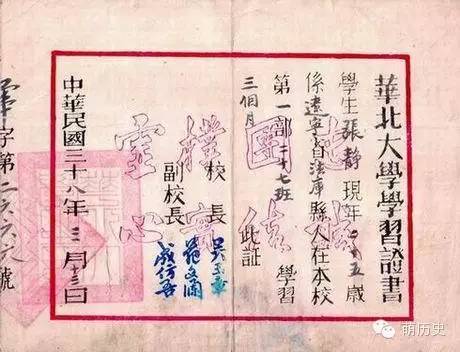 華北大學學習證書
學生張静現年二十五歲
係遼寧省法庫縣人在本校
第一部二十七班 學習
三個月 此証
忠誠
團結
樸實
虛心
校長 吳玉章
副校長 范文瀾
成仿吾
中華民國三十八年三月十三日
華字第二六六六號
萌历史